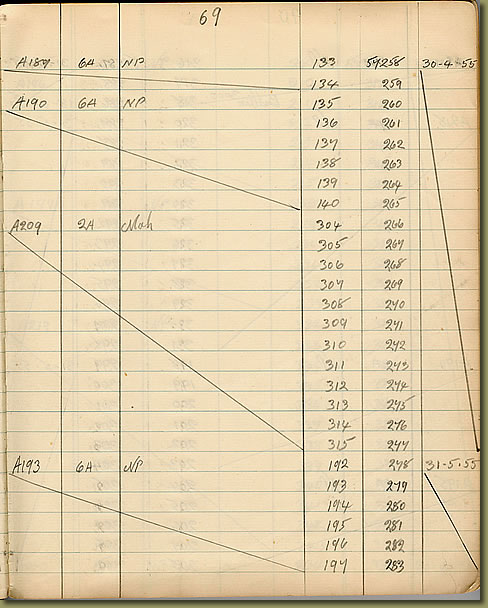 69
A189 6A NP 133 59258 30-4-55
134 259
A190 6A NP 135 260
136 261
137 262
138 263
139 264
140 265
A209 2A Mah 304 266
305 267
306 268
307 269
308 270
309 271
310 272
311 273
312 274
313 275
314 276
315 277
A193 6A NP 192 278 31-5-55
193 279
194 280
195 281
196 282
197 283